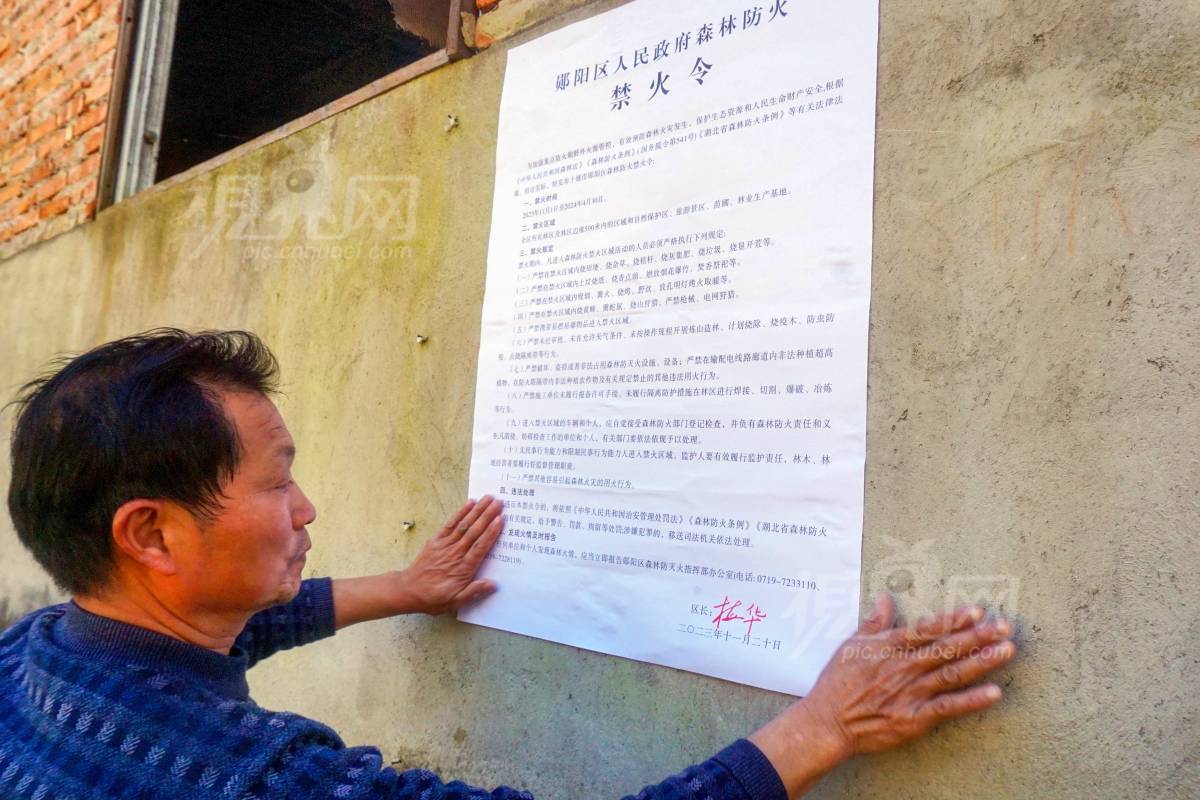 郧阳区人民政府森林防火
禁火令
为加强重点防火期野外火源管控,有效预防森林火灾发生,保护生态资源和人民生命财产安全,根据
《中华人民共和国森林法》《森林防火条例》(国务院令第541号)《湖北省森林防火条例》等有关法律法
规,结合实际,特发布十堰市郧阳区森林防火禁火令:
一、禁火时间
2023年11月1日至2024年4月30日。
二、禁火区域
全区所有林区及林区边缘500米内的区域和自然保护区、旅游景区、苗圃、林业生产基地。
三、禁火规定
禁火期内,凡进入森林防火禁火区域活动的人员必须严格执行下列规定:
(一)严禁在禁火区域内烧田埂、烧杂草、烧秸秆、烧灰集肥、烧垃圾、烧垦开荒等。
(二)严禁在禁火区域内上坟烧纸、烧香点烛、燃放烟花爆竹、焚香祭祀等。
(三)严禁在禁火区域内吸烟、篝火、烧烤、野炊、放孔明灯烤火取暖等。
(四)严禁在禁火区域内烧黄蜂、熏蛇鼠、烧山狩猎,严禁枪械、电网狩猎。
(五)严禁携带易燃易爆物品进入禁火区域。
(六)严禁未经审批、未在允许天气条件、未按操作规程开展炼山造林、计划烧除、烧疫木、防虫防
烧隔离带等行为。
(七)严禁破坏、盗窃或者非法占用森林防灭火设施、设备;严禁在输配电线路廊道内非法种植超高
植物,在防火阻隔带内非法种植农作物及有关规定禁止的其他违法用火行为。
(八)严禁施工单位未履行报备许可手续、未履行隔离防护措施在林区进行焊接、切割、爆破、冶炼
等行为。
(九)进入禁火区域的车辆和个人,应自觉接受森林防火部门登记检查,并负有森林防火责任和义
务;凡阻挠、妨碍检查工作的单位和个人,有关部门要依法依规予以处理。
(十)无民事行为能力和限制民事行为能力人进入禁火区域,监护人要有效履行监护责任,林木、林
地经营者要履行好监督管理职责。
(十一)严禁其他容易引起森林火灾的用火行为。
四、违法处理
违反本禁火令的,将依照《中华人民共和国治安管理处罚法》《森林防火条例》《湖北省森林防火
的有关规定,给予警告、罚款、拘留等处罚;涉嫌犯罪的,移送司法机关依法处理。
、发现火情及时报告
何单位和个人发现森林火情,应当立即报告郧阳区森林防灭火指挥部办公室(电话:0719-7233110、
-7228119)。
区长:杜华
二〇二三年十一月二十日
视界网
pic.cnhubei.com
视界网
pic.cnhubei.com